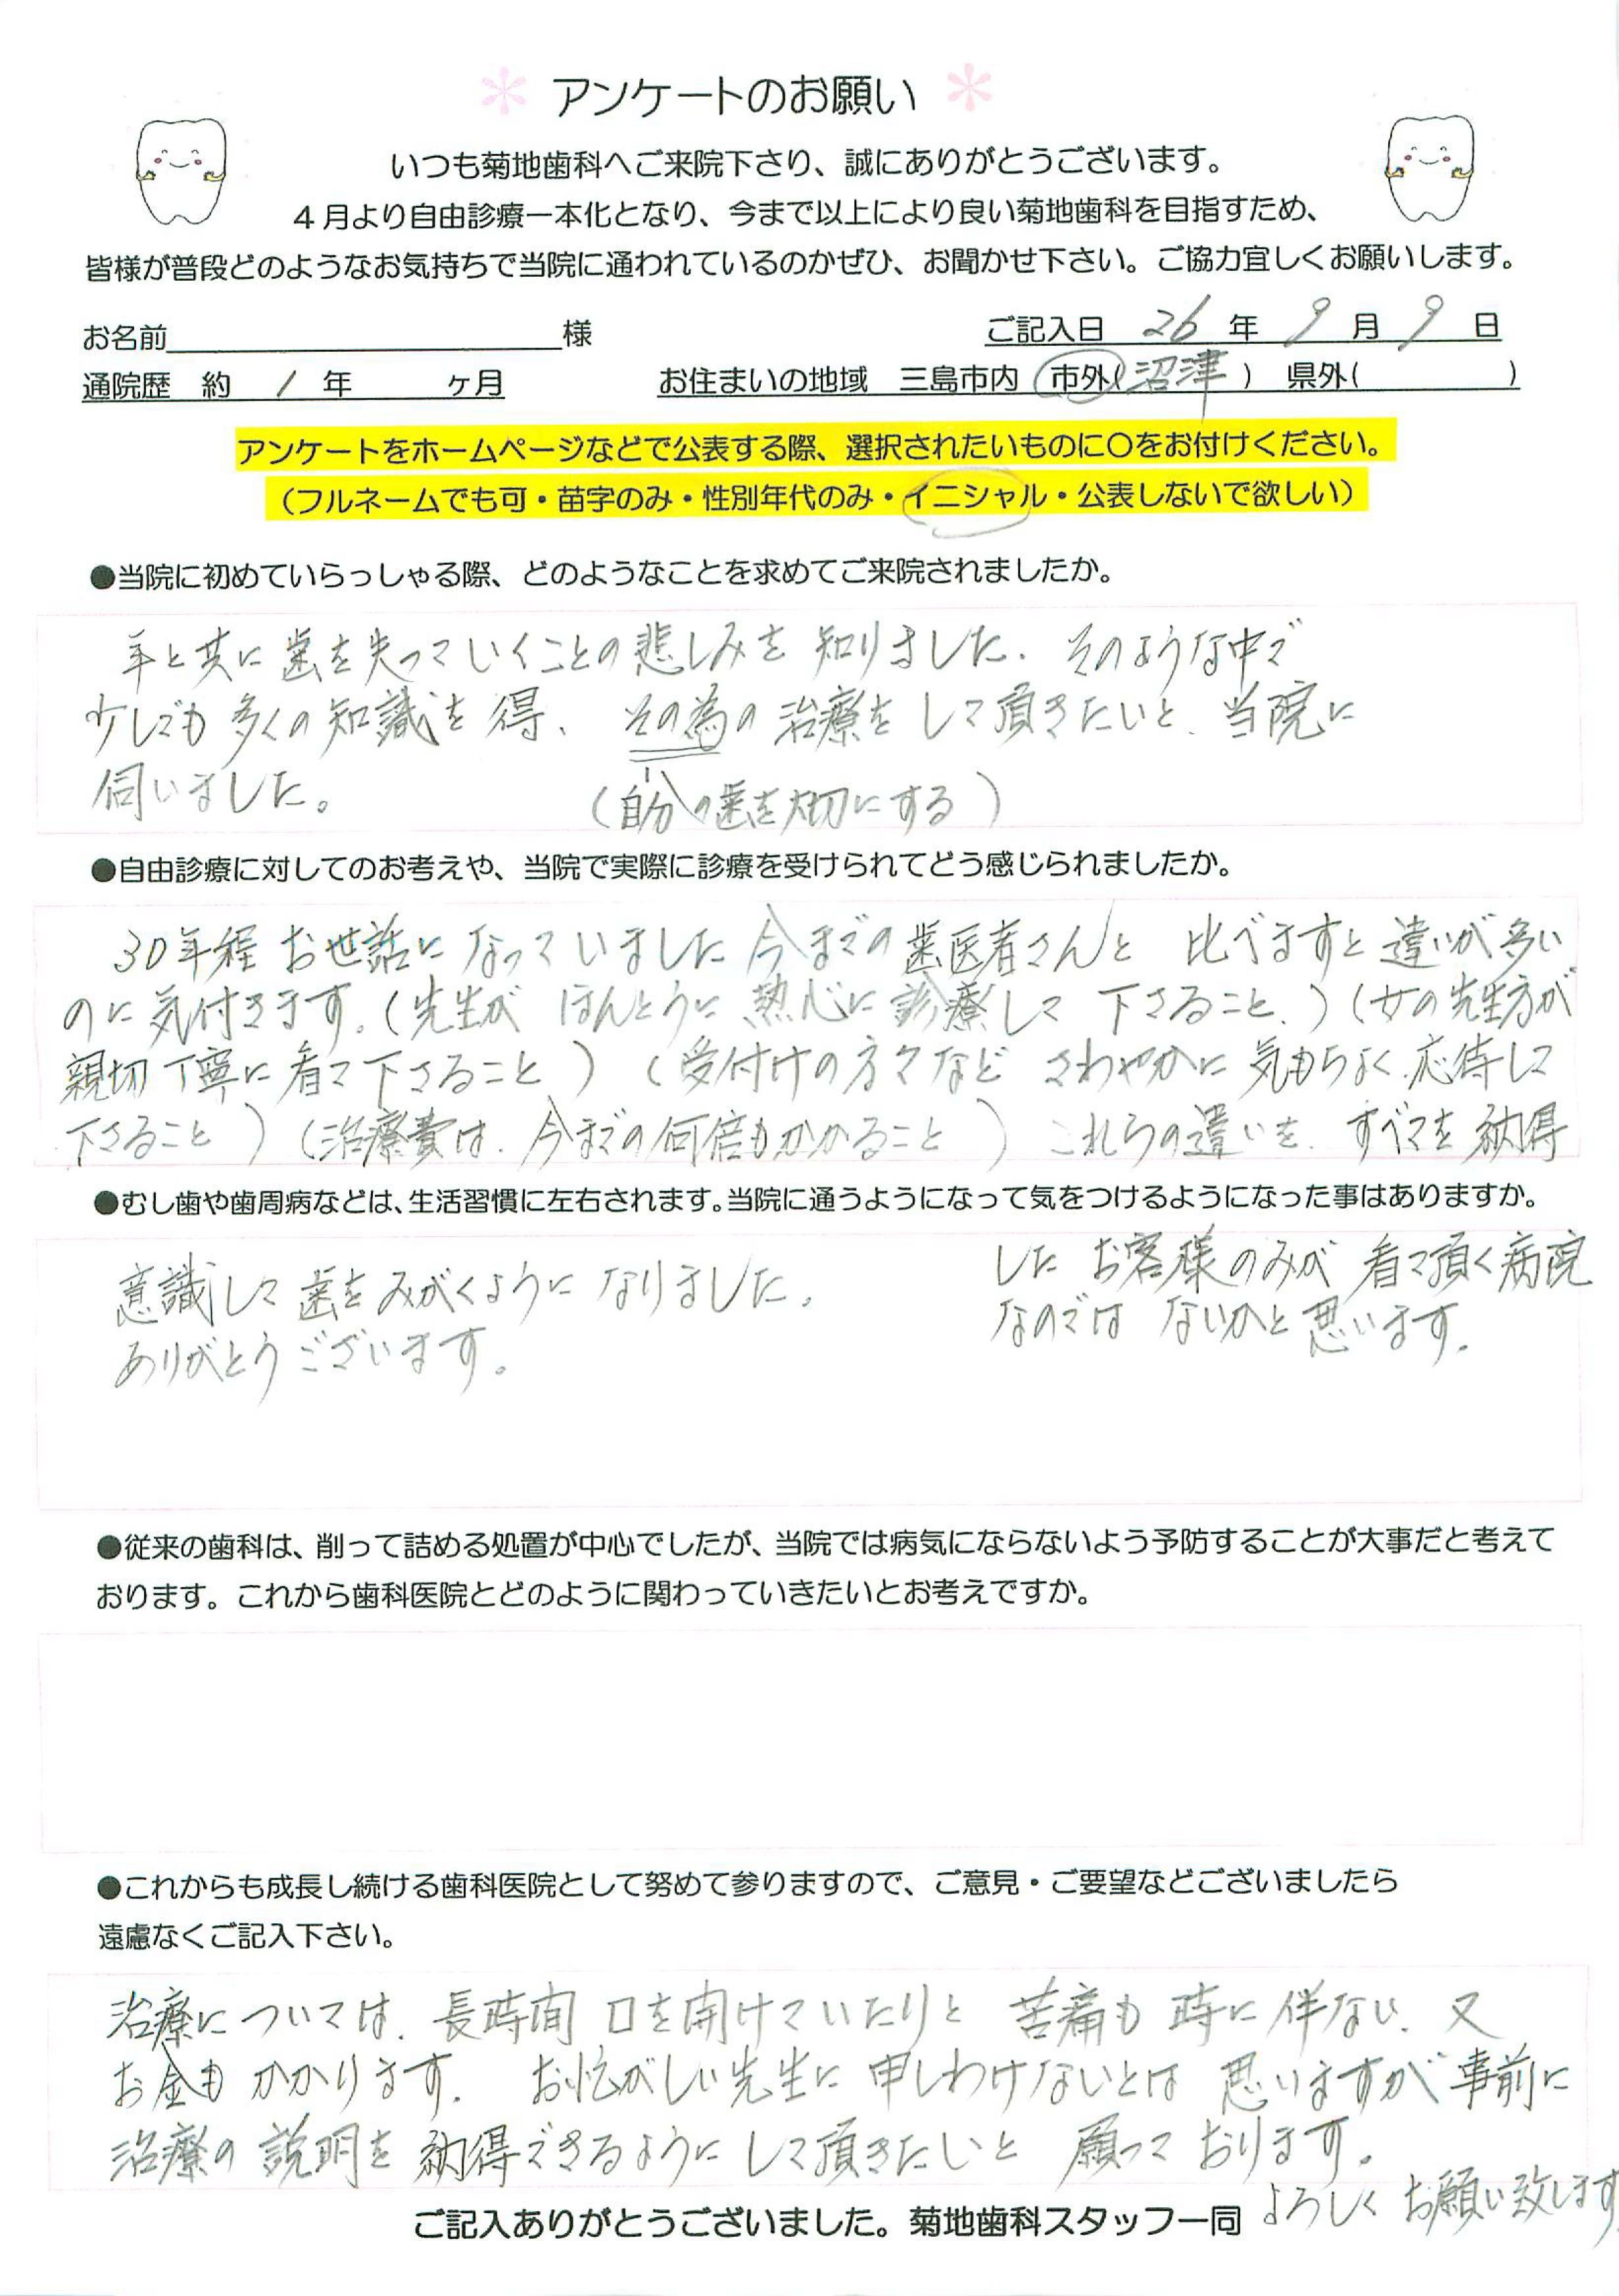 アンケートのお願い
いつも菊地歯科へご来院下さり、誠にありがとうございます。
4月より自由診療一本化となり、今まで以上により良い菊地歯科を目指すため、
皆様が普段どのようなお気持ちで当院に通われているのかぜひ、お聞かせ下さい。ご協力宜しくお願いします。
お名前 様 ご記入日 26年 9月 9日
通院歴 約 1年 ヶ月 お住まいの地域 三島市内 市外(沼津) 県外( )
アンケートをホームページなどで公表する際、選択されたいものに〇をお付けください。
(フルネームでも可・苗字のみ・性別年代のみ・イニシャル・公表しないで欲しい)
●当院に初めていらっしゃる際、どのようなことを求めてご来院されましたか。
年と共に歯を失っていくことの悲しみを知りました、そのような中で
少しでも多くの知識を得、その為の治療をして頂きたいと、当院に
伺いました。
(自分の歯を大切にする)
●自由診療に対してのお考えや、当院で実際に診療を受けられてどう感じられましたか。
30年程お世話になっていました今までの歯医者さんと 比べますと違いが多い
のに気付きます。(先生が ほんとうに熱心に診療して下さること、)(女の先生方が
親切丁寧に看て下さること)(受付けの方々など さわやかに気もちよく応待して
下さること)(治療費は、今までの何倍もかかること) これらの違いを、すべてを納得
●むし歯や歯周病などは、生活習慣に左右されます。当院に通うようになって気をつけるようになった事はありますか。
した お客様のみが 看て頂く病院
なのでは ないかと思います。
意識して歯をみがくようになりました。
ありがとうございます。
●従来の歯科は、削って詰める処置が中心でしたが、当院では病気にならないよう予防することが大事だと考えて
おります。これから歯科医院とどのように関わっていきたいとお考えですか。
●これからも成長し続ける歯科医院として努めて参りますので、ご意見・ご要望などございましたら
遠慮なくご記入下さい。
治療については、長時間 口を開けていたりと 苦痛も時に伴ない、又
お金もかかります。お忙がしい先生に申しわけないとは思いますが事前に
治療の説明を納得できるようにして頂きたいと願っております。
よろしくお願い致します
ご記入ありがとうございました。菊地歯科スタッフ一同